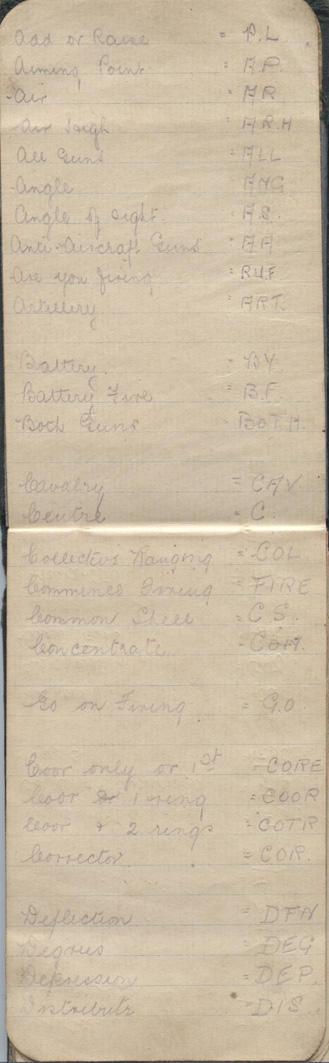 Add or Raise = P.L
Aiming Point = A.P.
Air = AR
Air High = AR.H
All Guns = ALL
Angle = ANG
Angle of Sight. = A.S.
Anti-Aircraft Guns = AA
Are you firing = RUF
Artillery = ART.
Battery. = BY
Battery Fire = B.F.
Both Guns = BOTH.
Cavalry = CAV
Centre = C.
Collective Ranging = COL
Commence Firing = FIRE
Common Shell = C S.
Concentrate =
Go on Firing = G.O
Coor only or 1st = CORE
Coor & 1 ring = COOR
Coor & 2 rings = COTR
Corrector. = COR.
Deflection = DFN
Degrees = DEG
Depression = DEP.
Distribute = DIS.